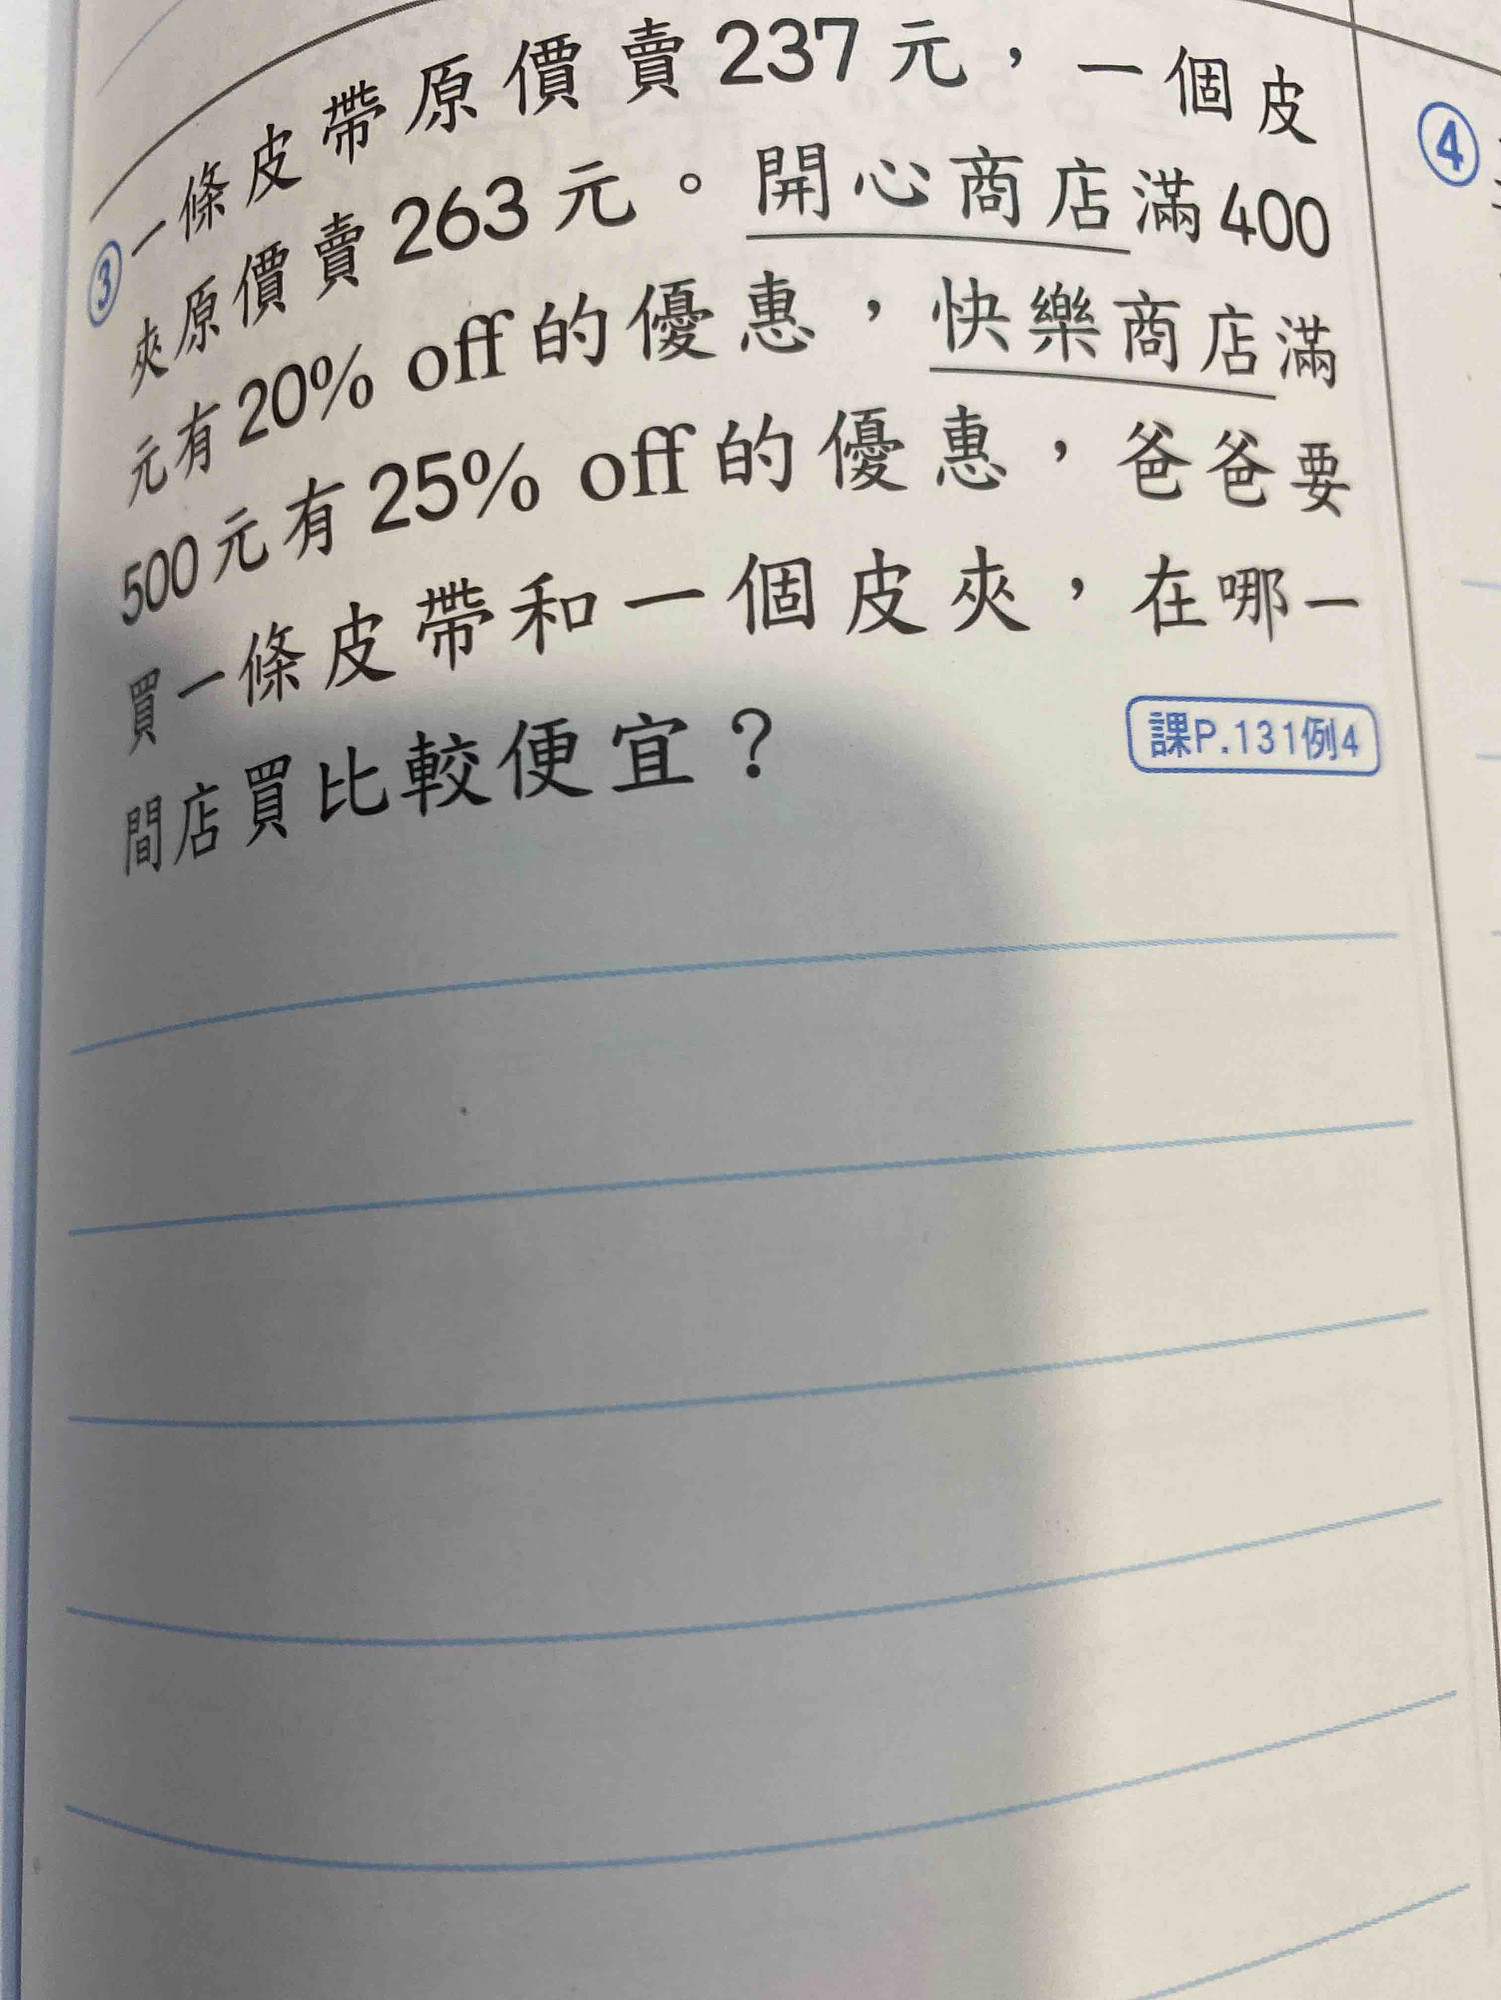 ③一條皮帶原價賣237元，一個皮
夾原價賣263元。開心商店滿400
元有20% off的優惠，快樂商店滿
500元有25% off的優惠，爸爸要
買一條皮帶和一個皮夾，在哪一
間店買比較便宜？
課P.131例4
④